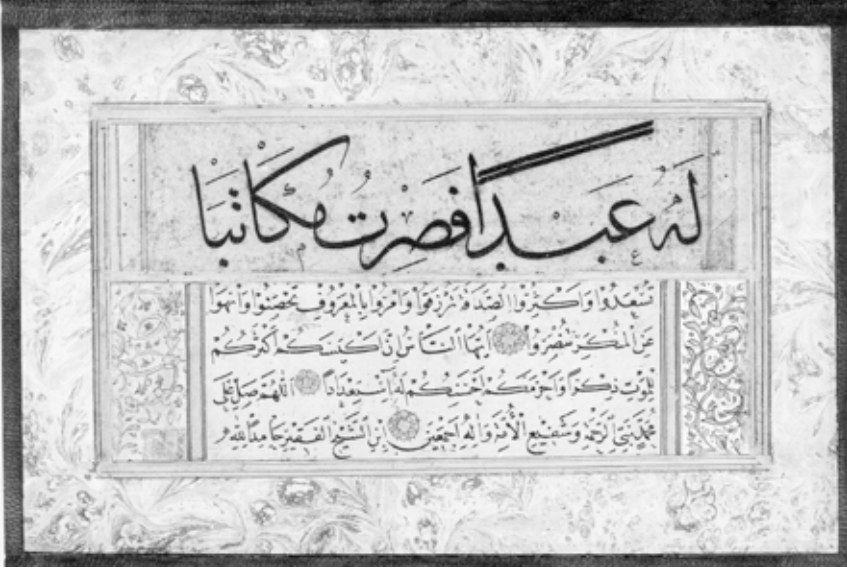 له عبدا فصرت مكاتبا
تسعدوا واكثروا الصدقة ترزقوا وامروا بالمعروف تحصنوا وانهوا
عن المنكر تنصروا ايها الناس ان اكيسكم اكثركم
للموت ذكرا واحزمكم احسنكم له استعدادا اللهم صل على
محمد نبي الرحمة وشفيع الأمة واله اجمعين ابن الشيخ الفقير حامدا لله و